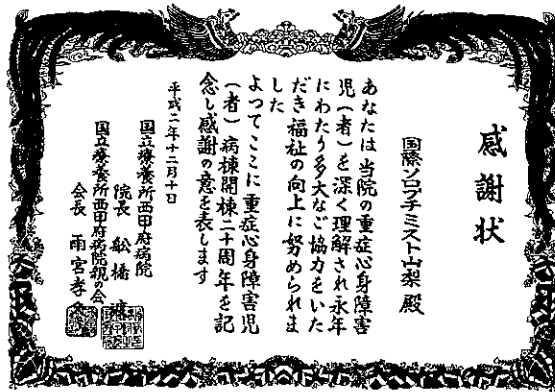 感謝状
国際ソロプチミスト山梨 殿
あなたは当院の重症心身障害
児(者)を深く理解され永年
にわたり多大なご協力をいた
だき福祉の向上に努められま
した
よつてここに重症心身障害児
(者)病棟開棟二十周年を記
念し感謝の意を表します
平成二年十二月十日
国立療養所西甲府病院
院長 舩橋
国立療養所西甲府病院親の会
会長 雨宮孝